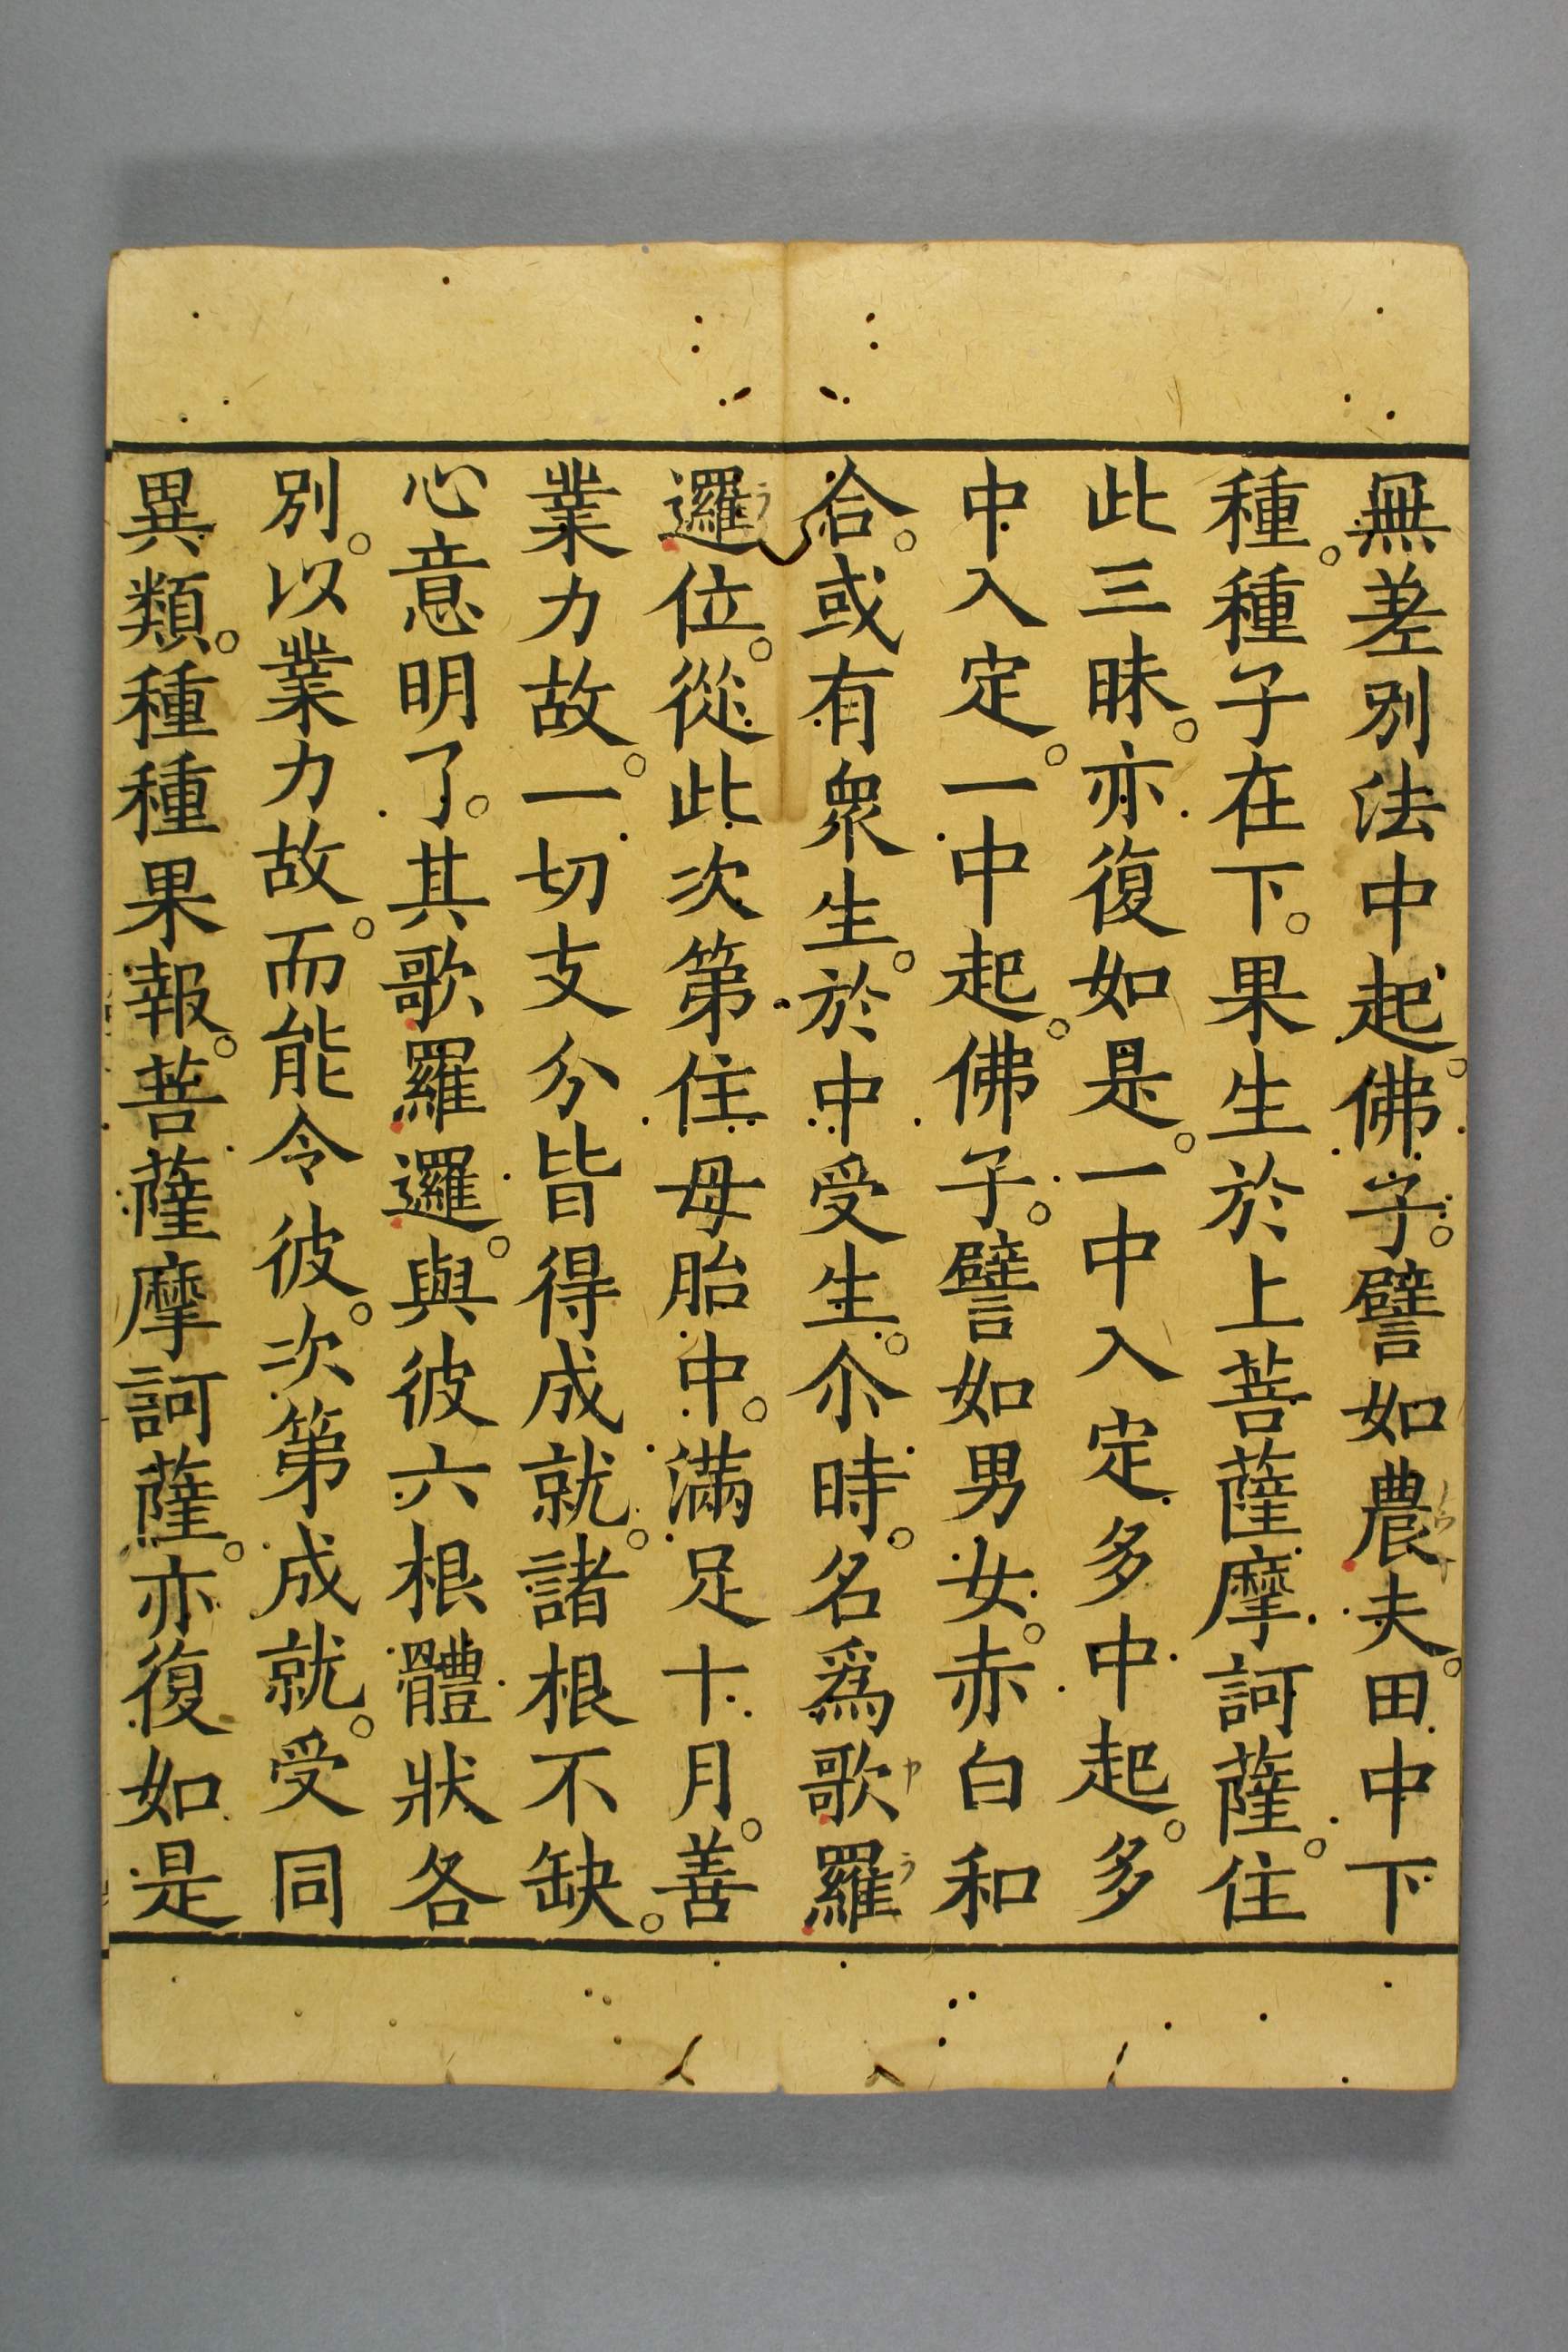 無差別法中起。佛子。譬如農夫。田中下
種。種子在下。果生於上菩薩摩訶薩。住
此三昧。亦復如是。一中入定多中起。多
中入定。一中起。佛子。譬如男女。赤白和
合。或有衆生。於中受生。尒時。名爲歌羅
邏位。從此次第住母胎中。滿足十月。善
業力故。一切支分皆得成就。諸根不缺。
心意明了。其歌羅邏。與彼六根體狀各
別。以業力故。而能令彼。次第成就。受同
異類。種種果報。菩薩摩訶薩。亦復如是